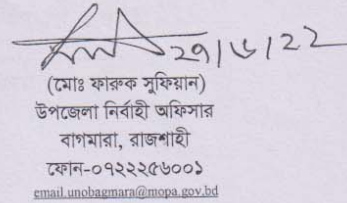 ২৭/৬/২২
(মোঃ ফারুক সুফিয়ান)
উপজেলা নির্বাহী অফিসার
বাগমারা, রাজশাহী
ফোন-০৭২২২৫৬০০১
email.unobagmara@mopa.gov.bd